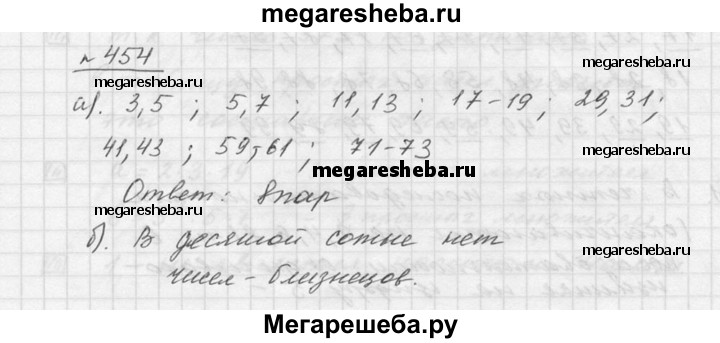 megaresheba.ru
№ 454
megaresheba.ru megaresheba.ru
а). 3,5 ; 5,7 ; 11,13 ; 17-19 ; 29,31;
41,43 ; 59-61 ; 71-73
megaresheba.ru
Ответ: 8 пар
megaresheba.ru
б). В десятой сотне нет
megaresheba.ru
чисел - близнецов.
megaresheba.ru
Мегарешеба.ру